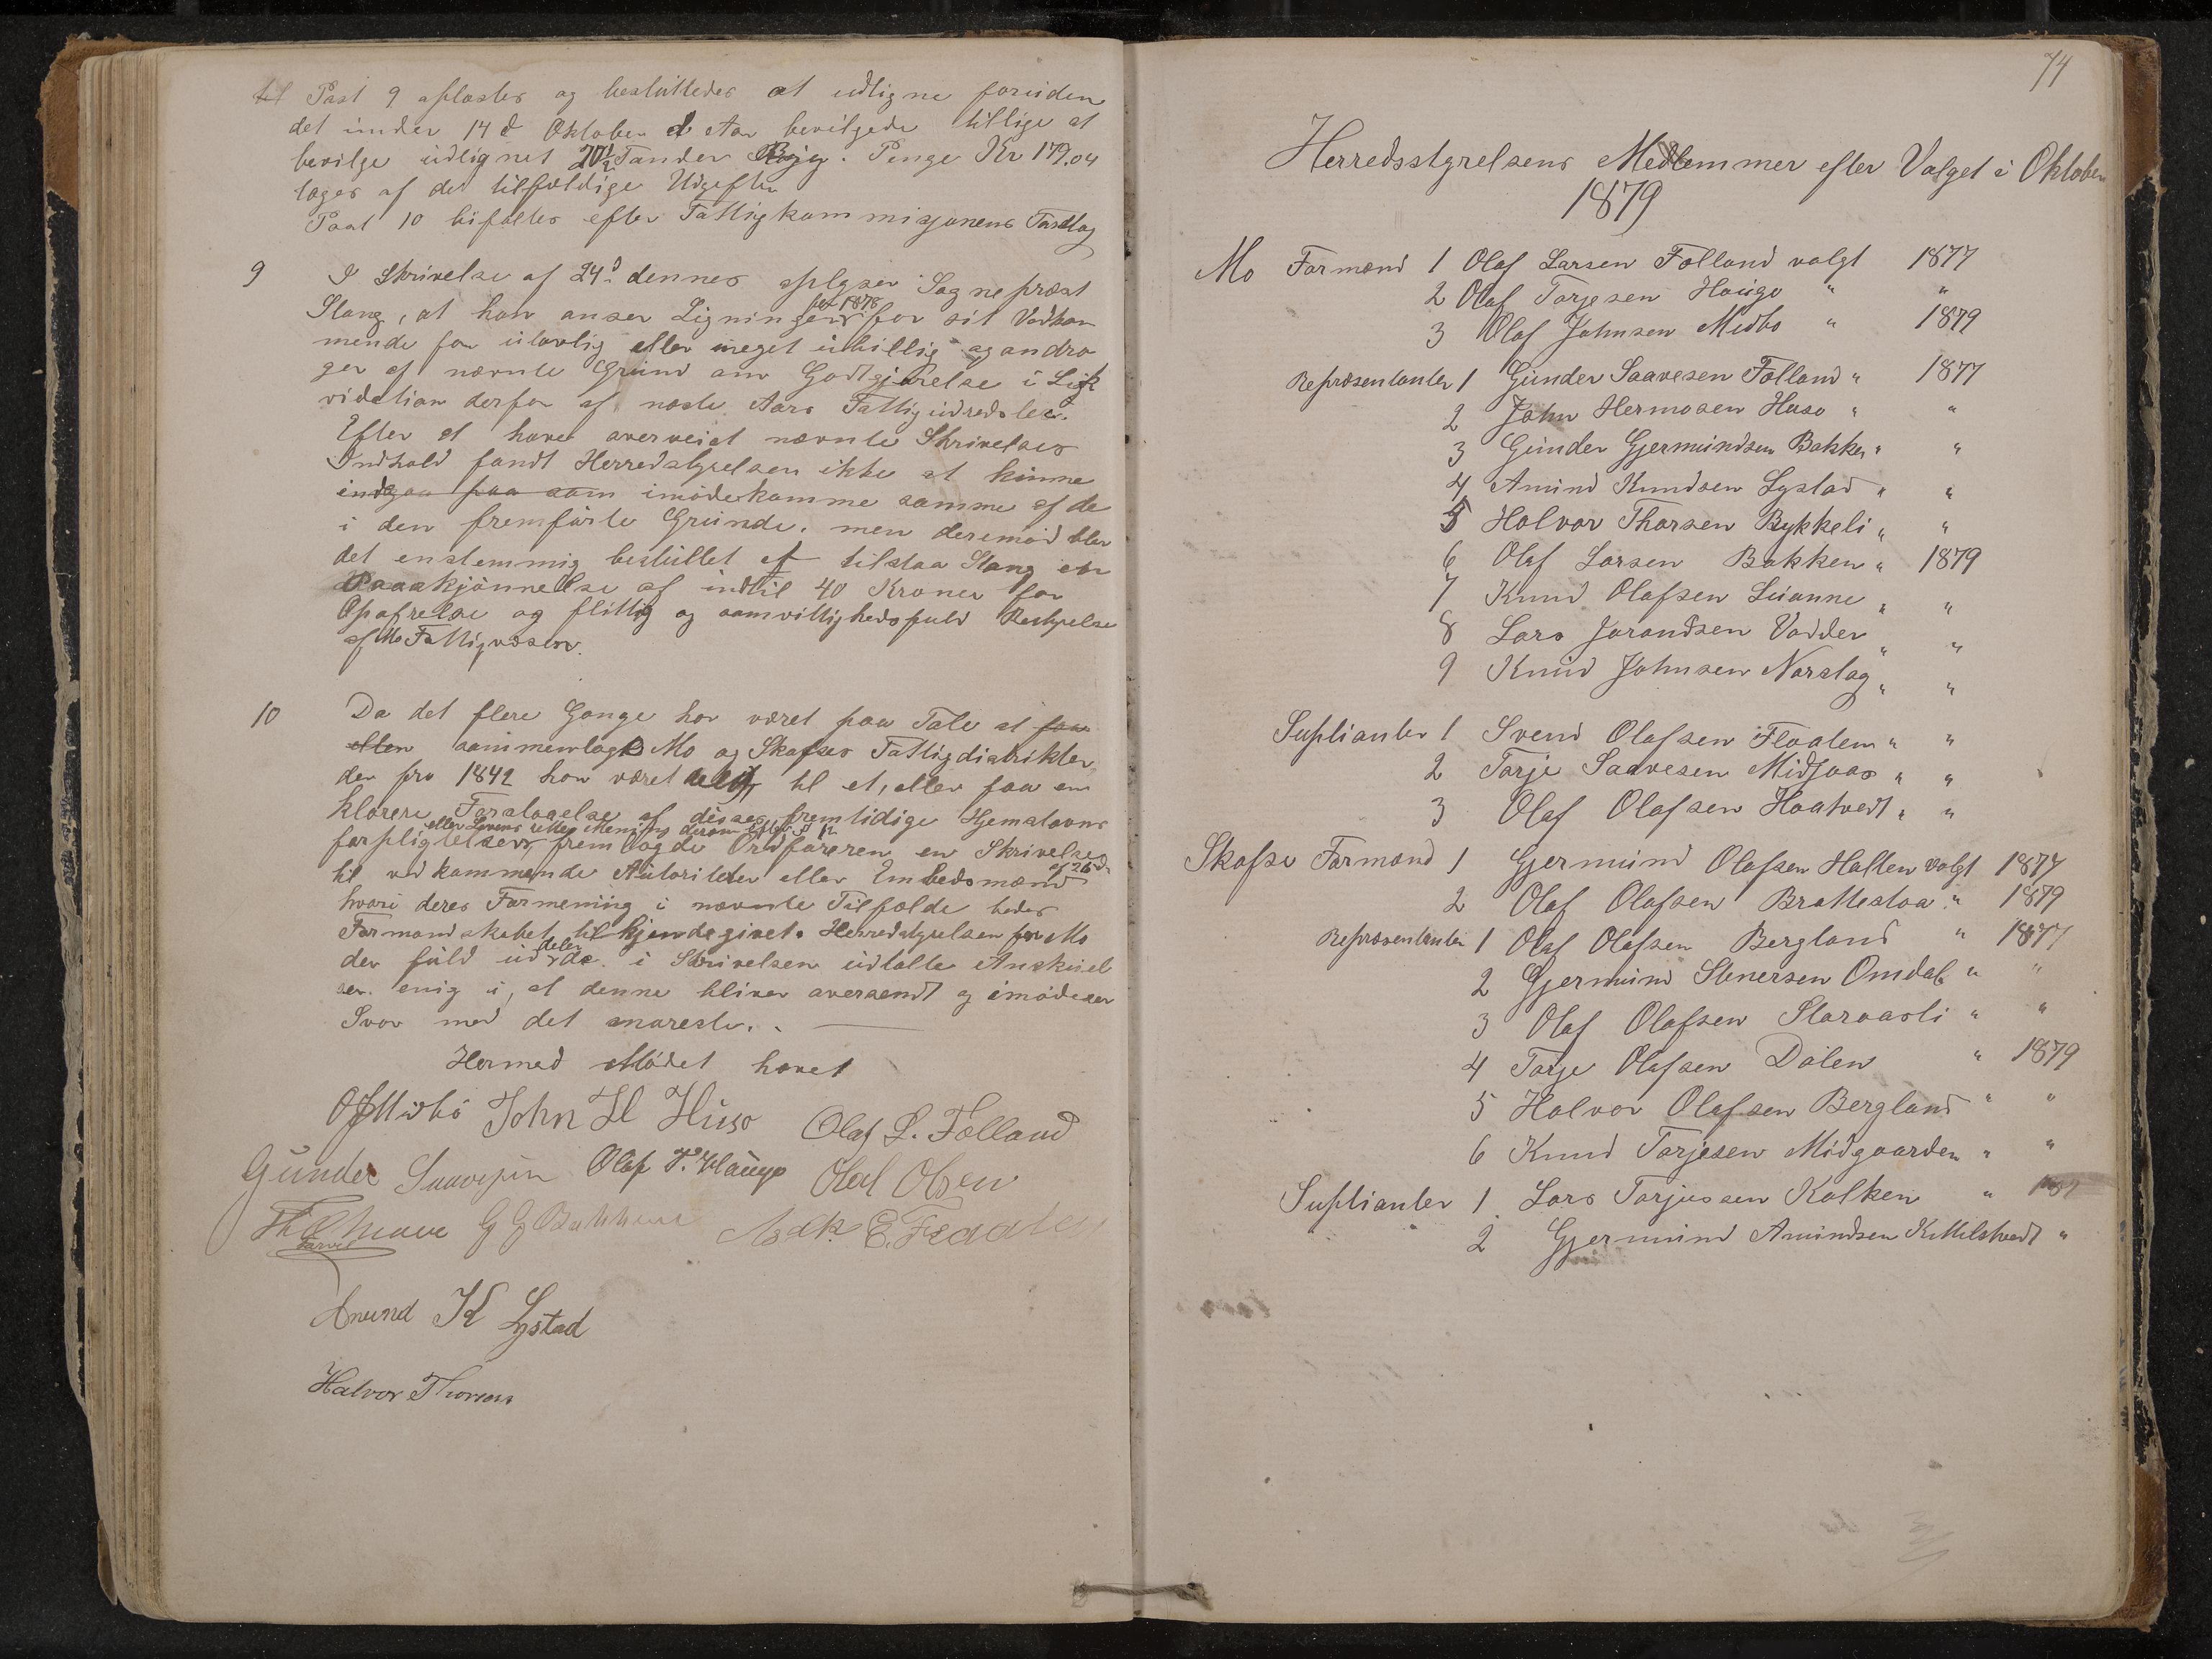 til Post 9 oplæstes og besluttedes at udligne foruden
det under 14 d Oktober d Aar bevilgede tillige at
bevilge udlignet 20½ Tønder Byg. Penge Kr 179,04
tages af de tilfældige Udgifter
Post 10 bifaltes efter Fattigkommisjonens Forslag
9 I Skrivelse af 24d dennes oplyser Sogneprest
Stang, at han anser Ligningen for 1878 for sit Vedkom
mende for ulovlig eller meget ubillig og andra
ger af nævnte Grund om Godtgjørelse i Lik
vidation derfor af næste Aars Fattigudredsler.
Efter at have overveiet nævnte Skrivelses
Indhold fandt Herredstyrelsen ikke at kunne
indgaa paa som imødekomme samme af de
i den fremførte Grunde, men derimod blev
det enstemmig besluttet at tilstaa Stang en
Paaskjønnelse af indtil 40 Kroner for
Opofrelse og flittig og samvittighedsfuld Bestyrelse
af Mo Fattigvæsen.
10 Da det flere Gange har været paa Tale at faa
eller sammenlagt Mo og Skafses Fattigdistrikter
der fra 1842 har været delt til et, eller faa en
klarere Forstaaelse af disses fremtidige Hjemstavns
forpligtelser, eller Lovens rette Mening derom fremlagde Ordføreren en Skrivelse
til vedkommende Autoriteter eller Embedsmænd af 26 d.
hvori deres Formening i nævnte Tilfælde bedes
Formandskabet tilkjendegivet. Herredstyrelsen for Mo
der fuld ud deler de i Skrivelsen udtalte Anskuel
ser enig i, at denne bliver oversendt og imødeser
Svar med det snareste.
Hermed Mødet hævet
O J Midbø John H Huso Olaf L. Følland
Gunder Saavesen Olaf T. Haugo Olaf Olsen
G G Bakken E. Fladlen
Anund K Lystad
Halvor Thorsen
74
Herredsstyrelsens Medlemmer efter Valget i Oktober
1879
Mo Formænd 1 Olaf Larsen Følland valgt 1877
2 Olaf Torjesen Haugo " "
3 Olaf Johnsen Midbø " 1879
Repræsentanter 1 Gunder Saavesen Følland " 1877
2 John Hermosen Huso " "
3 Gunder Gjermundsen Bakken " "
4 Anund Knudsen Lystad " "
5 Halvor Thorsen Rykkeli " "
6 Olaf Larsen Bakken " 1879
7 Knud Olafsen Luanne " "
8 Lars Jorandsen Vadder " "
9 Knud Johnsen Norslag " "
Suplianter 1 Svend Olafsen Flaalem " "
2 Torje Saavesen Midjaas " "
3 Olaf Olafsen Haatvedt " "
Skafse Formænd 1 Gjermund Olafsen Hallen valgt 1877
2 Olaf Olafsen Brattestaa " 1879
Repræsentanter 1 Olaf Olafsen Bergland " 1877
2 Gjermund Stenersen Omdal " "
3 Olaf Olafsen Storaasli " "
4 Torje Olafsen Dalen " 1879
5 Halvor Olafsen Bergland " "
6 Knud Torjesen Midgaarden " "
Suplianter 1 Lars Torjussen Kalken "
" 2 Gjermund Anundsen Kittilstvedt "